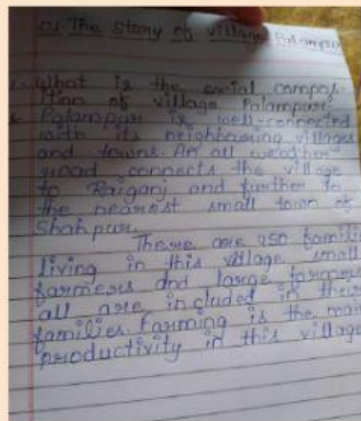 01. The Story of Village Palampur
What is the social compos-
ition of village Palampur.
Palampur is well-connected
with its neighbouring villages
and towns. An all weather
road connects the village
to Raiganj and further to
the nearest small town of
Shahpur.
There are 450 famili
living in this village small
farmers and large farmer
all are included in their
families. Farming is the main
productivity in this village